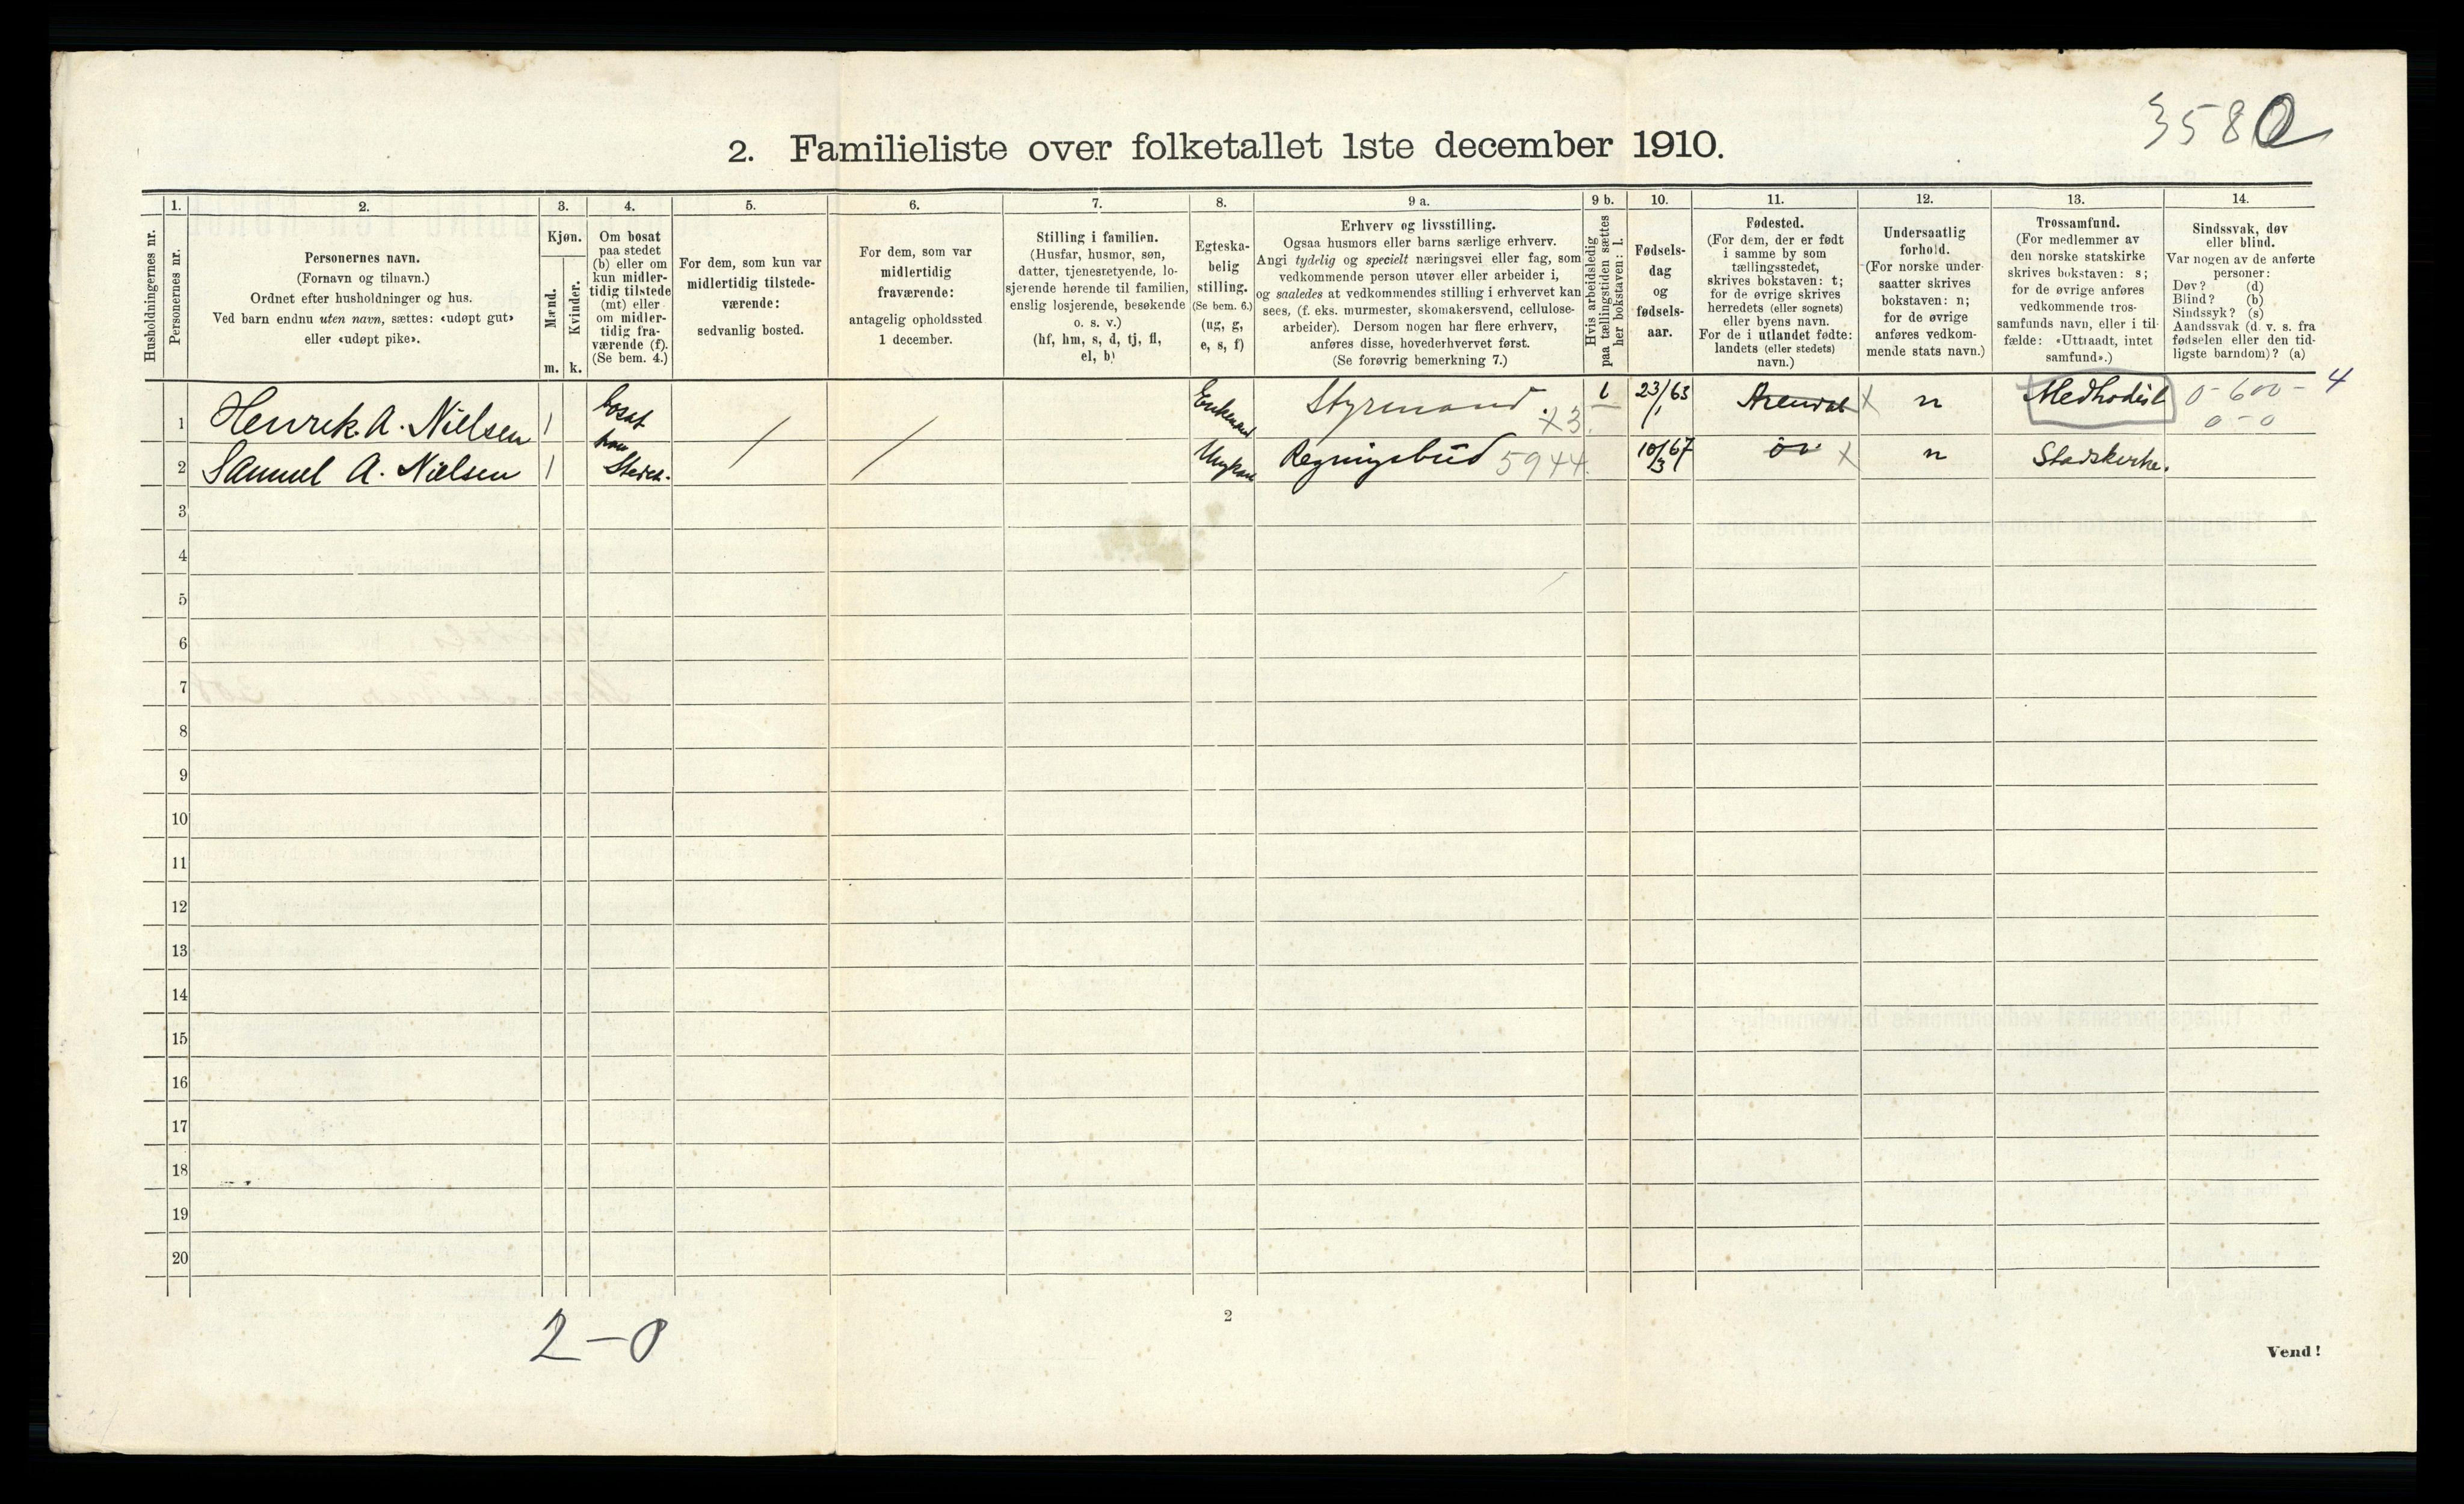 3580
2. Familieliste over folketallet 1ste december 1910.
Husholdningernes nr.
1.
Personernes nr.
2.
Personernes navn.
(Fornavn og tilnavn.)
Ordnet efter husholdninger og hus.
Ved barn endnu uten navn, sættes: «udøpt gut»
eller «udøpt pike».
3.
Kjøn.
Mænd.
Kvinder.
m. k.
4.
Om bosat
paa stedet
(b) eller om
kun midler-
tidig tilstede
(mt) eller
om midler-
tidig fra-
værende (f).
(Se bem. 4.)
5.
For dem, som kun var
midlertidig tilstede-
værende:
sedvanlig bosted.
6.
For dem, som var
midlertidig
fraværende:
antagelig opholdssted
1 december.
7.
Stilling i familien.
(Husfar, husmor, søn,
datter, tjenestetyende, lo-
sjerende hørende til familien,
enslig losjerende, besøkende
o. s. v.)
(hf, hm, s, d, tj, fl,
el, b)
8.
Egteska-
belig
stilling.
(Se bem. 6.)
(ug, g,
e, s, f)
9 a.
Erhverv og livsstilling.
Ogsaa husmors eller barns særlige erhverv.
Angi tydelig og specielt næringsvei eller fag, som
vedkommende person utøver eller arbeider i,
og saaledes at vedkommendes stilling i erhvervet kan
sees, (f. eks. murmester, skomakersvend, cellulose-
arbeider). Dersom nogen har flere erhverv,
anføres disse, hovederhvervet først.
(Se forøvrig bemerkning 7.)
9 b.
Hvis arbeidsledig
paa tællingstiden sættes
her bokstaven: l.
10.
Fødsels-
dag
og
fødsels-
aar.
11.
Fødested.
(For dem, der er født
i samme by som
tællingsstedet,
skrives bokstaven: t;
for de øvrige skrives
herredets (eller sognets)
eller byens navn.
For de i utlandet fødte:
landets (eller stedets)
navn.)
12.
Undersaatlig
forhold.
(For norske under-
saatter skrives
bokstaven: n;
for de øvrige
anføres vedkom-
mende stats navn.)
13.
Trossamfund.
(For medlemmer av
den norske statskirke
skrives bokstaven: s;
for de øvrige anføres
vedkommende tros-
samfunds navn, eller i til-
fælde: «Uttraadt, intet
samfund».)
14.
Sindssvak, døv
eller blind.
Var nogen av de anførte
personer:
Døv? (d)
Blind? (b)
Sindssyk? (s)
Aandssvak (d. v. s. fra
fødselen eller den tid-
ligste barndom)? (a)
1 Henrik A. Nielsen 1 bosat / / Enkemand Styrmand x3. l 23/1 63 Arendal x n Methodist 0-600- 4
0-0
2 Samuel A. Nielsen 1 Stedet. Ungkar Regningsbud 5944 10/3 67 x n Statskirke.
3
4
5
6
7
8
9
10
11
12
13
14
15
16
17
18
19
20
2-0
2
Vend!